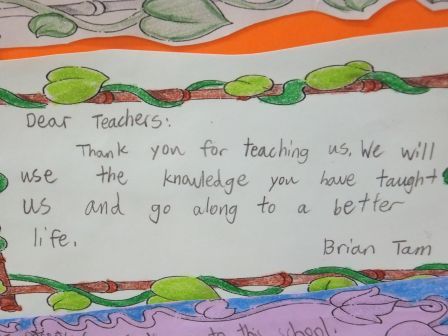 Dear Teachers:
Thank you for teaching us. We will
use the knowledge you have taught
us and go along to a better
life.
Brian Tam
to this school.